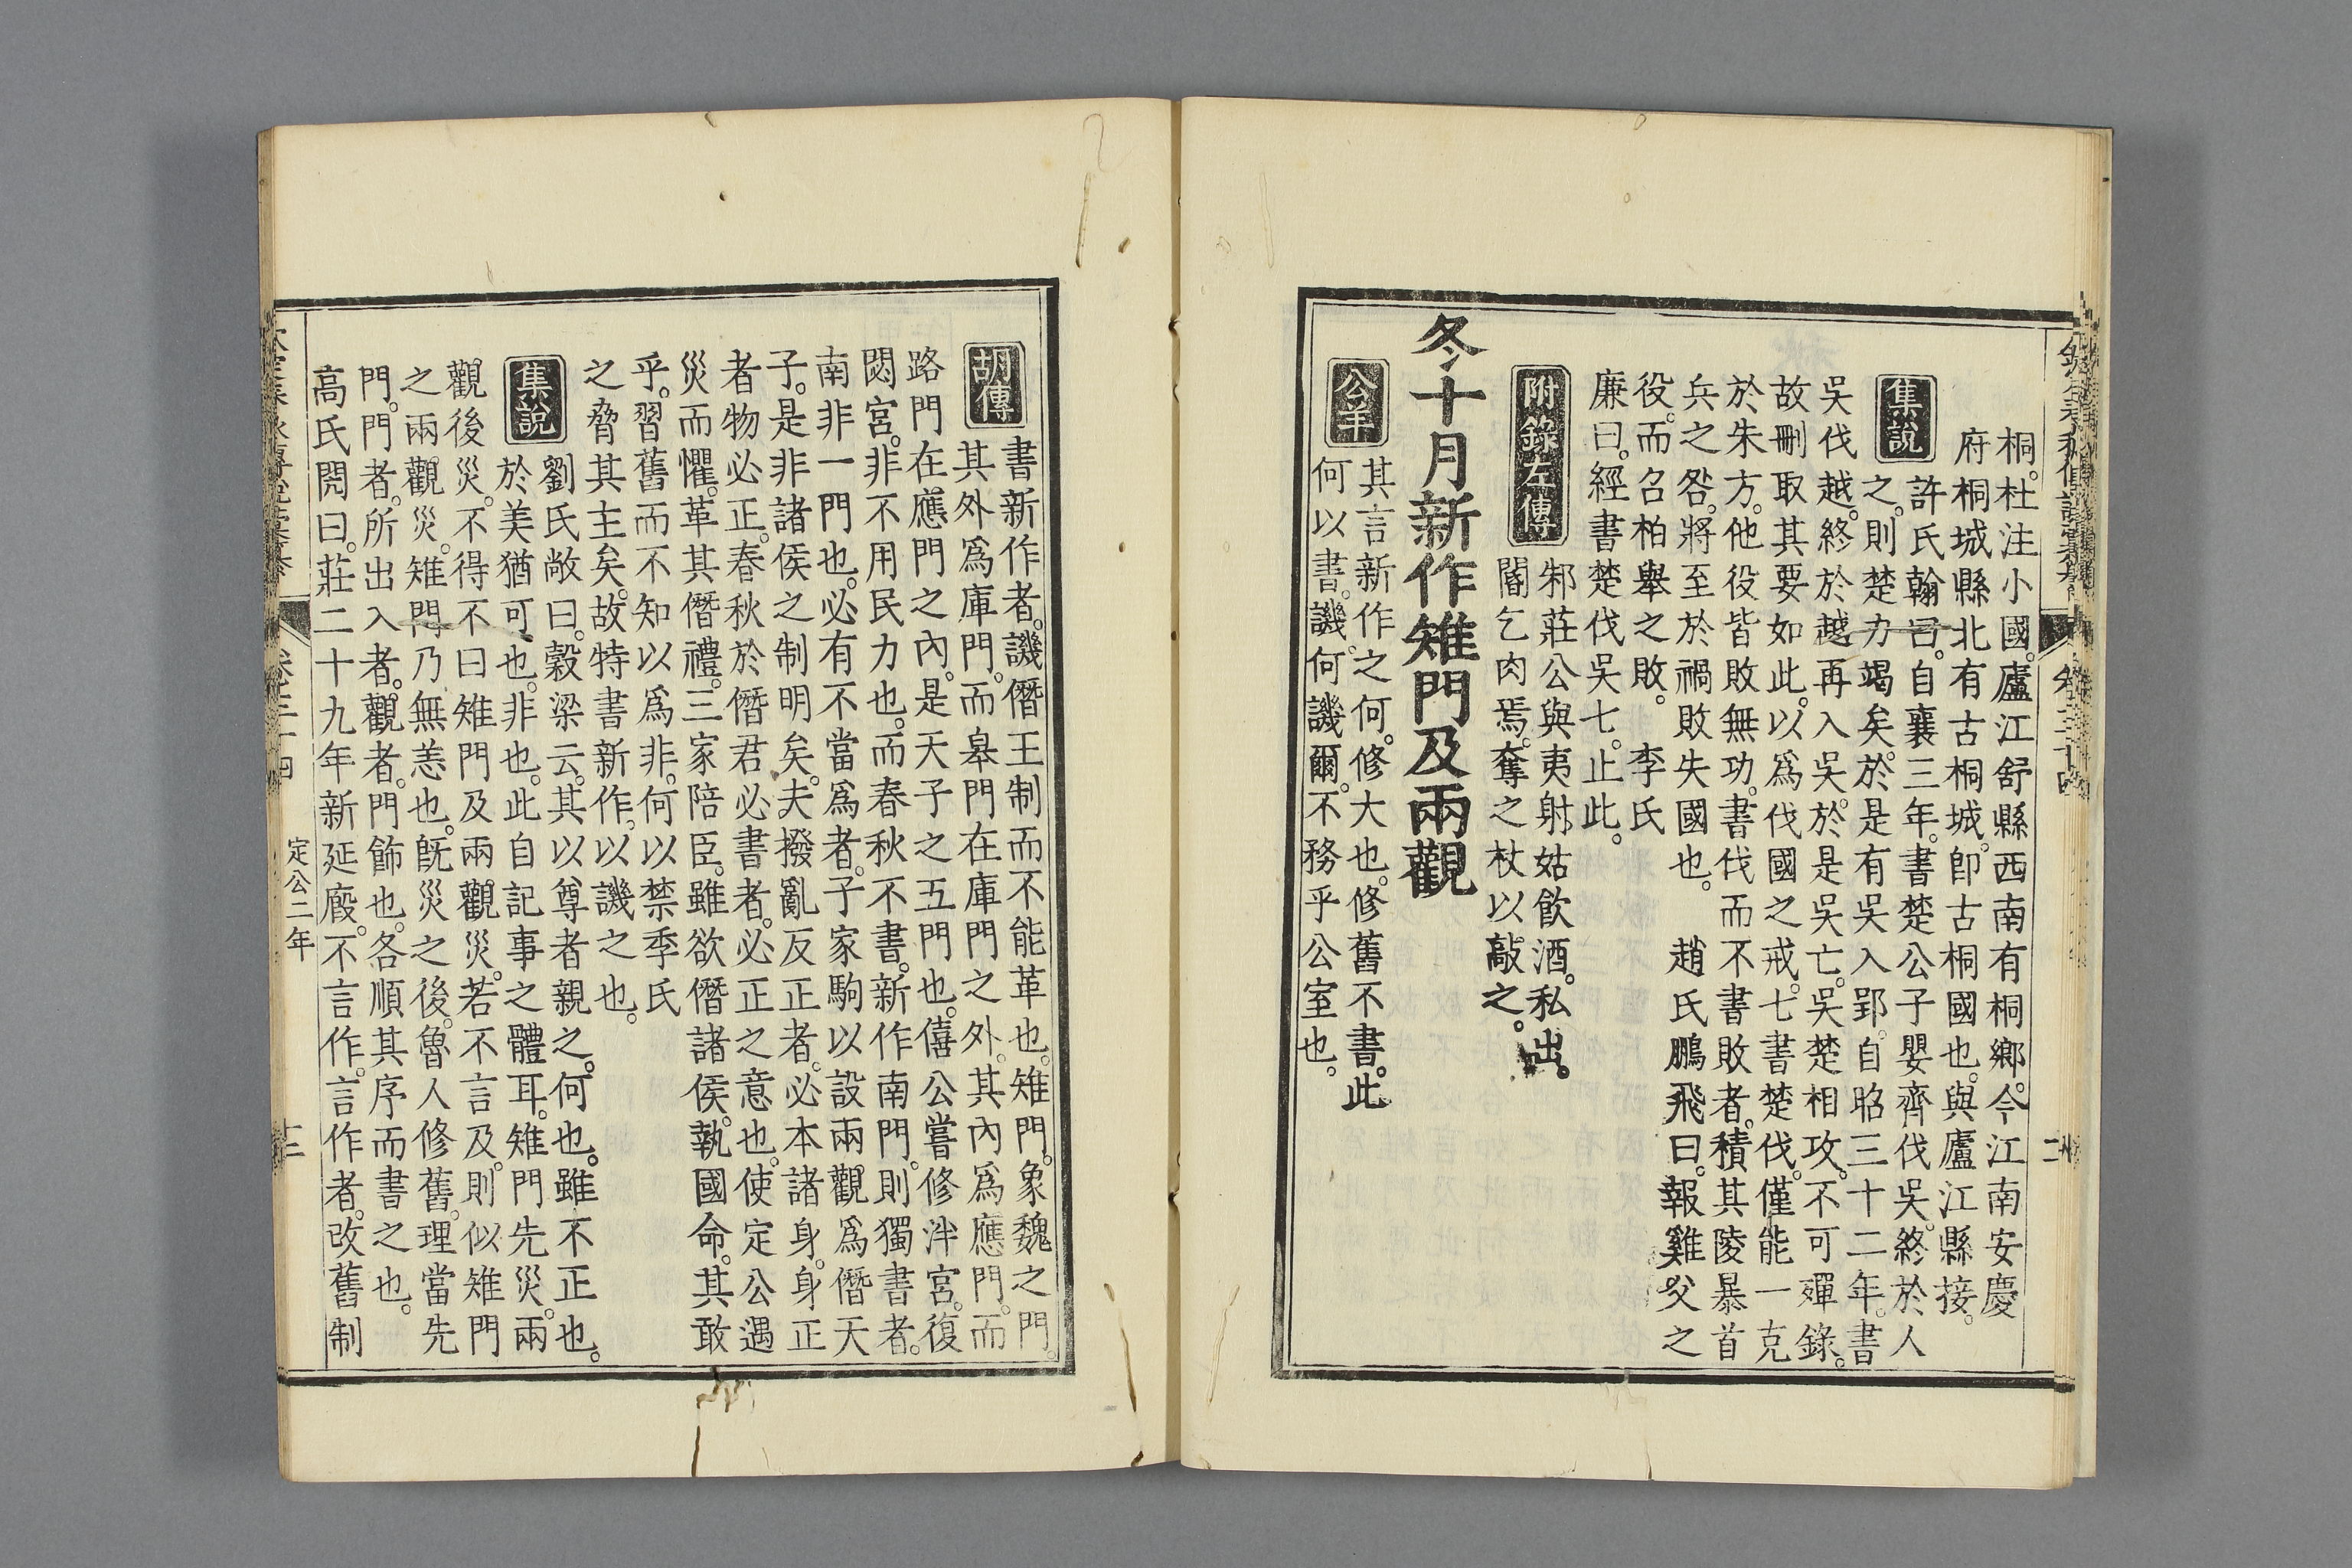 桐。杜注小國。廬江舒縣西南有桐鄉。今江南安慶
府桐城縣北有古桐城。卽古桐國也。與廬江縣接。
集說
許氏翰曰。自襄三年。書楚公子嬰齊伐吳。終於人
之。則楚力竭矣。於是有吳入郢。自昭三十二年。書
吳伐越。終於越再入吳。於是吳亡。吳楚相攻。不可殫錄。
故刪取其要如此。以爲伐國之戒。七書楚伐。僅能一克
於朱方。他役皆敗無功。書伐而不書敗者。積其陵暴首
兵之咎。將至於禍敗失國也。 趙氏鵬飛曰。報雞父之
役。而召柏舉之敗。 李氏
廉曰。經書楚伐吳七。止此。
附錄左傳
邾莊公與夷射姑飲酒。私出。
閽乞肉焉。奪之杖以敲之。
冬十月新作雉門及兩觀
公羊
其言新作之何。修大也。修舊不書。此
何以書。譏。何譏爾。不務乎公室也。
胡傳
書新作者。譏僭王制而不能革也。雉門。象魏之門。
其外爲庫門。而皋門在庫門之外。其內爲應門。而
路門在應門之內。是天子之五門也。僖公嘗修泮宮。復
閟宮。非不用民力也。而春秋不書。新作南門。則獨書者。
南非一門也。必有不當爲者。子家駒以設兩觀爲僭天
子。是非諸侯之制明矣。夫撥亂反正者。必本諸身。身正
者物必正。春秋於僭君。必書者。必正之意也。使定公遇
災而懼。革其僭禮。三家陪臣。雖欲僭諸侯。執國命。其敢
乎。習舊而不知以爲非。何以禁季氏
之脅其主矣。故特書新作。以譏之也。
集說
劉氏敞曰。穀梁云。其以尊者親之。何也。雖不正也。
於美猶可也。非也。此自記事之體耳。雉門先災。兩
觀後災。不得不曰雉門及兩觀災。若不言及。則似雉門
之兩觀災。雉門乃無恙也。旣災之後。魯人修舊。理當先
門。門者。所出入者。觀者。門飾也。各順其序而書之也。
高氏閌曰。莊二十九年新延廄。不言作。言作者。改舊制
定公二年